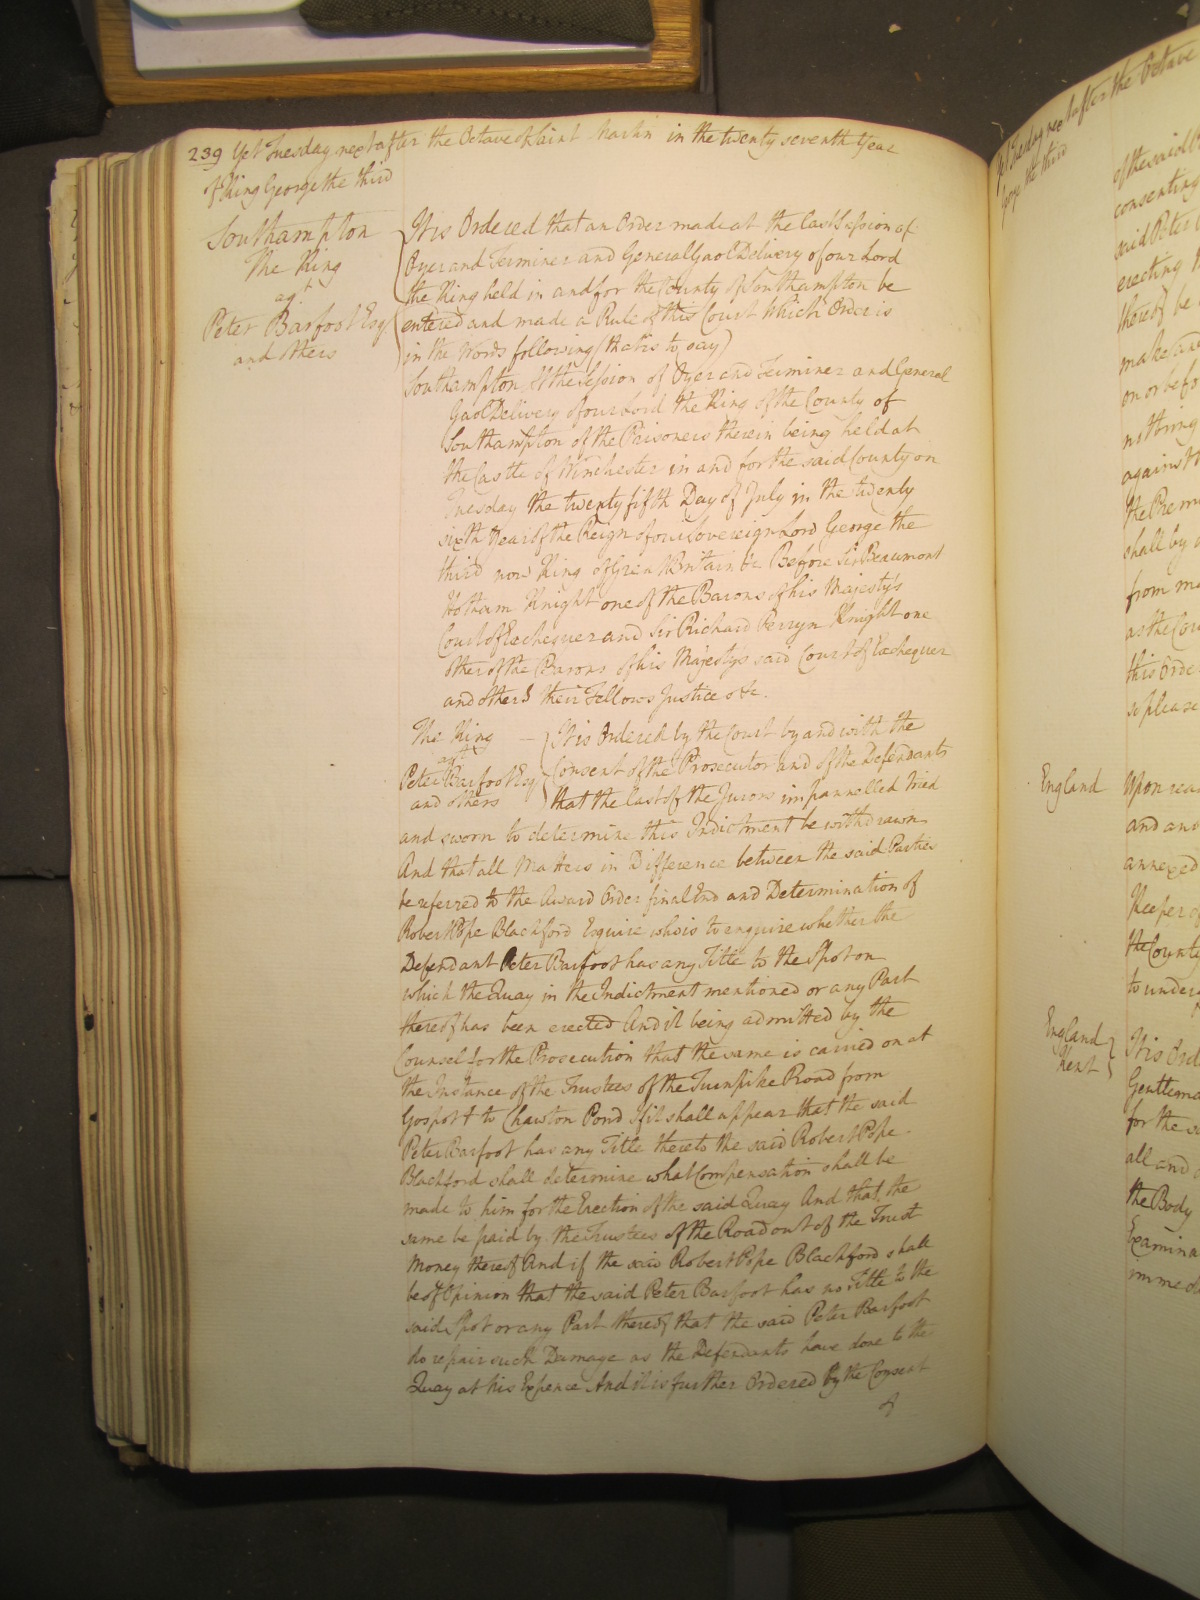 239 Yet Tuesday next after the Octave of Saint Martin in the twenty seventh Year
of King George the third
Southampton
The King
agt
Peter Barfoot Esqr
and others
It is Ordered that an Order made at the last Session of
Oyer and Terminer and General Gaol Delivery of our Lord
the King held in and for the County of Southampton be
entered and made a Rule of this Court Which Order is
in the Words following (that is to say)
Southampton At the Session of Oyer and Terminer and General
Gaol Delivery of our Lord the King of the County of
Southampton of the Prisoners therein being held at
the Castle of Winchester in and for the said County on
Tuesday the twenty fifth Day of July in the twenty
sixth Year of the Reign of our Sovereign Lord George the
third now King of Great Britain &c Before Sir Beaumont
Hotham Knight one of the Barons of his Majesty's
Court of Exchequer and Sir Richard Perryn Knight one
other of the Barons of his Majesty's said Court of Exchequer
and others their Fellows Justices &c.
The King
agt
Peter Barfoot Esqr
and others
It is Ordered by the Court by and with the
Consent of the Prosecutor and of the Defendants
that the last of the Jurors impannelled tried
and sworn to determine this Indictment be withdrawn
And that all Matters in Difference between the said Parties
be referred to the Award Order final End and Determination of
Robert Pope Blachford Esquire who is to enquire whether the
Defendant Peter Barfoot has any Title to the Spot on
which the Quay in the Indictment mentioned or any Part
thereof has been erected And it being admitted by the
Counsel for the Prosecution that the same is carried on at
the Instance of the Trustees of the Turnpike Road from
Gosport to Chawton Pond If it shall appear that the said
Peter Barfoot has any Title thereto the said Robert Pope
Blachford shall determine what Compensation shall be
made to him for the Erection of the said Quay And that the
same be paid by the Trustees of the Road out of the Trust
Money thereof And if the said Robert Pope Blachford shall
be of Opinion that the said Peter Barfoot has no Title to the
said Spot or any Part thereof that the said Peter Barfoot
do repair such Damage as the Defendants have done to the
Quay at his Expence And it is further Ordered by the Consent
of
Yet Tuesday next after the Octave
George the third
of the said
consenting
said Peter
erecting
thereof be
make
on or befo
nothing
against
the Prem
shall by
from ma
as the Cou
this Orde
so please
England
Upon rea
and and
annexed
Keeper of
the County
to under
England
Kent
It is Ord
Gentlema
for the
all and
the Body
Examina
immed